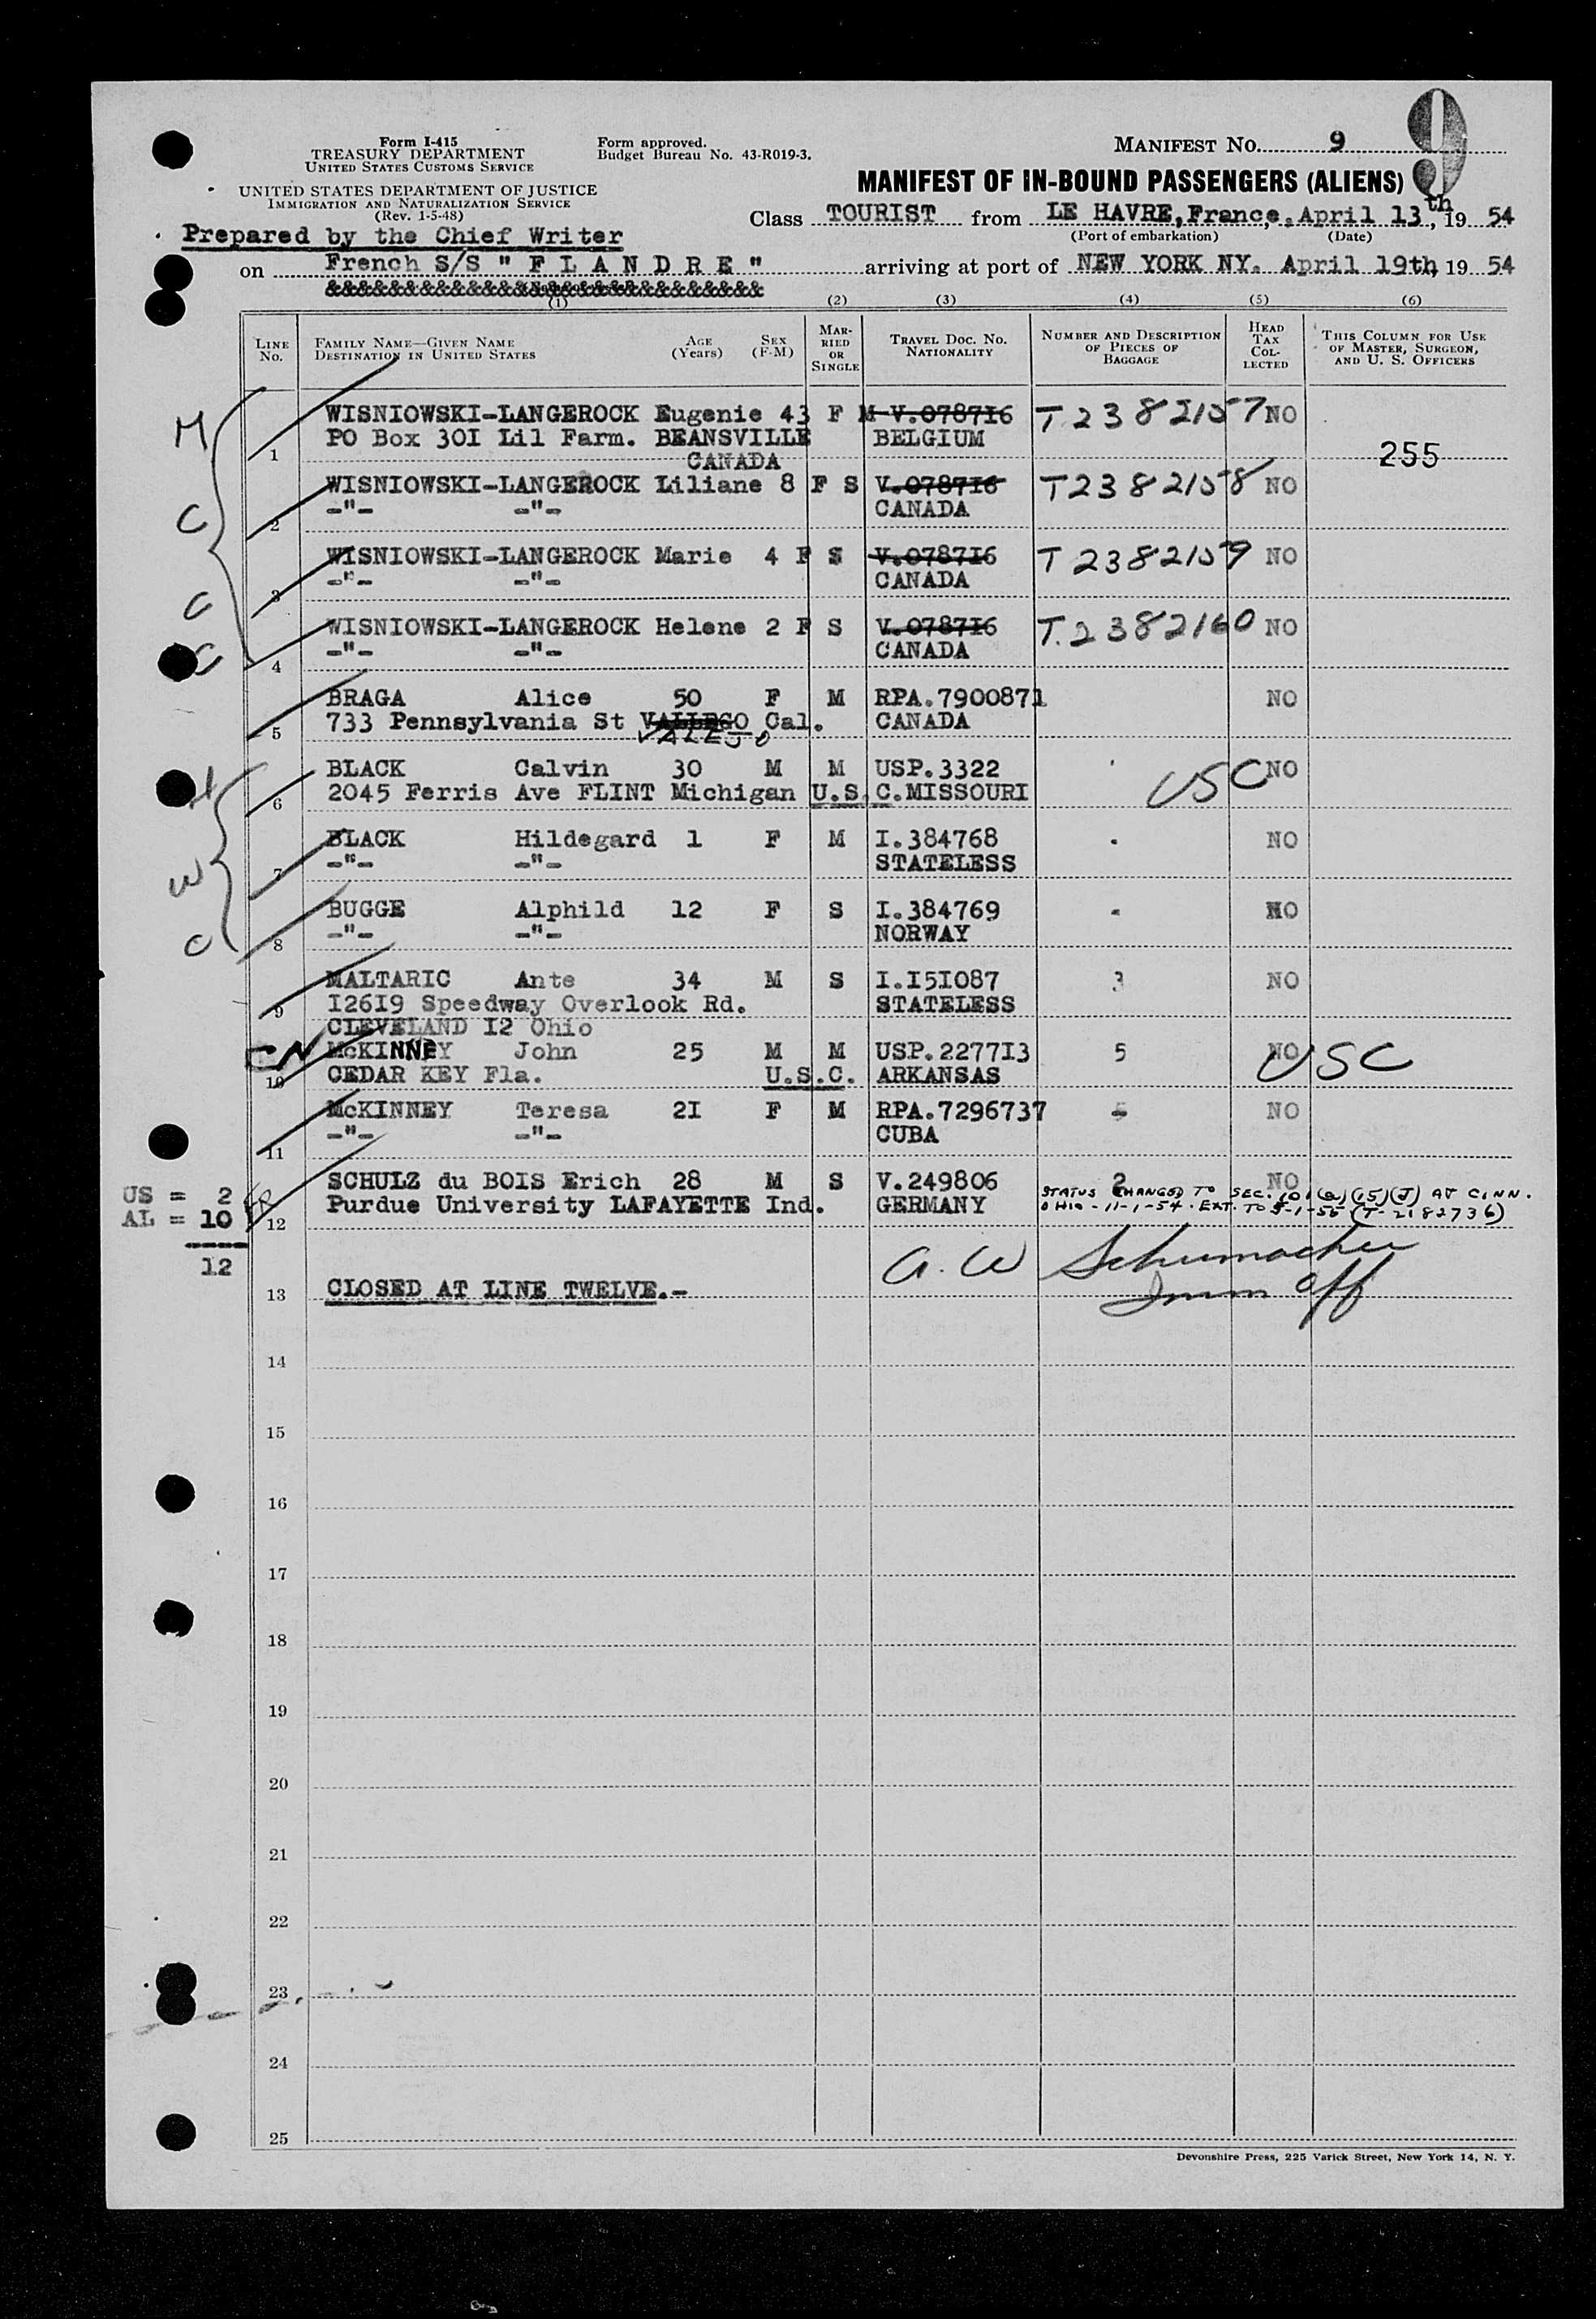 Form I-415
TREASURY DEPARTMENT
UNITED STATES CUSTOMS SERVICE
UNITED STATES DEPARTMENT OF JUSTICE
IMMIGRATION AND NATURALIZATION SERVICE
(Rev. 1-5-48)
Form approved.
Budget Bureau No. 43-R019-3.
MANIFEST NO. 9
9
MANIFEST OF IN-BOUND PASSENGERS (ALIENS)
Class TOURIST from LE HAVRE, France, April 13th, 19 54
(Port of embarkation) (Date)
Prepared by the Chief Writer
on French S/S " F L A N D R E " arriving at port of NEW YORK NY. April 19th, 19 54
&&&&&&&&&&&&&&&&&&&&&&&&&&&
(1) (2) (3) (4) (5) (6)
LINE No. FAMILY NAME—GIVEN NAME DESTINATION IN UNITED STATES AGE (Years) SEX (F-M) MARRIED OR SINGLE TRAVEL DOC. NO. NATIONALITY NUMBER AND DESCRIPTION OF PIECES OF BAGGAGE HEAD TAX COLLECTED THIS COLUMN FOR USE OF MASTER, SURGEON, AND U. S. OFFICERS
M WISNIOWSKI-LANGEROCK Eugenie 43 F M V.0787I6 T2382157 NO
1 PO Box 30I Lil Farm. BEANSVILLE BELGIUM 255
CANADA
C WISNIOWSKI-LANGEROCK Liliane 8 F S V.0787I6 T2382158 NO
2 -"- -"- CANADA
WISNIOWSKI-LANGEROCK Marie 4 F S V.0787I6 T2382159 NO
C 3 -"- -"- CANADA
WISNIOWSKI-LANGEROCK Helene 2 F S V.0787I6 T.2382160 NO
C 4 -"- -"- CANADA
BRAGA Alice 50 F M RPA.7900871 NO
5 733 Pennsylvania St VALLEGO Cal. CANADA
VALEJO
BLACK Calvin 30 M M USP.3322 USC NO
6 2045 Ferris Ave FLINT Michigan U.S.C. MISSOURI
BLACK Hildegard 1 F M I.384768 NO
W 7 -"- -"- STATELESS
BUGGE Alphild 12 F S I.384769 NO
C 8 -"- -"- NORWAY
MALTARIC Ante 34 M S I.I5I087 3 NO
9 I26I9 Speedway Overlook Rd. STATELESS
CLEVELAND I2 Ohio
CN McKINNEY John 25 M M USP.2277I3 5 NO USC
10 CEDAR KEY Fla. U.S.C. ARKANSAS
McKINNEY Teresa 2I F M RPA.7296737 5 NO
11 -"- -"- CUBA
US = 2 SCHULZ du BOIS Erich 28 M S V.249806 2 NO
AL = 10 12 Purdue University LAFAYETTE Ind. GERMANY STATUS CHANGED TO SEC. 101(a)(15)(J) AT CINN.
OHIO - 11-1-54. EXT. TO 5-1-55 (T-2182736)
12
A. W Schumacher
13 CLOSED AT LINE TWELVE.- Imm Off
14
15
16
17
18
19
20
21
22
23
24
25
Devonshire Press, 225 Varick Street, New York 14, N. Y.